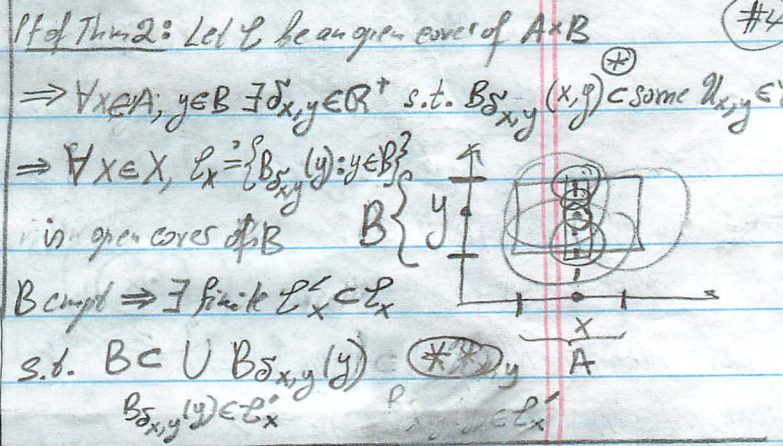 Pf of Thm 2: Let ℓ be an open cover of A×B
#4
⇒ ∀x∈A, y∈B ∃δx,y∈R⁺ s.t. Bδx,y(x,y) ⊂ some Ux,y ∈
*
⇒ ∀x∈X, ℓx = {Bδx,y(y): y∈B}
is open cover of B
B { y
B cmpt ⇒ ∃ finite ℓ'x ⊂ ℓx
x
A
s.t. B ⊂ ∪ Bδx,y(y) ** y
Bδx,y(y) ∈ ℓ'x
∈ ℓ'x